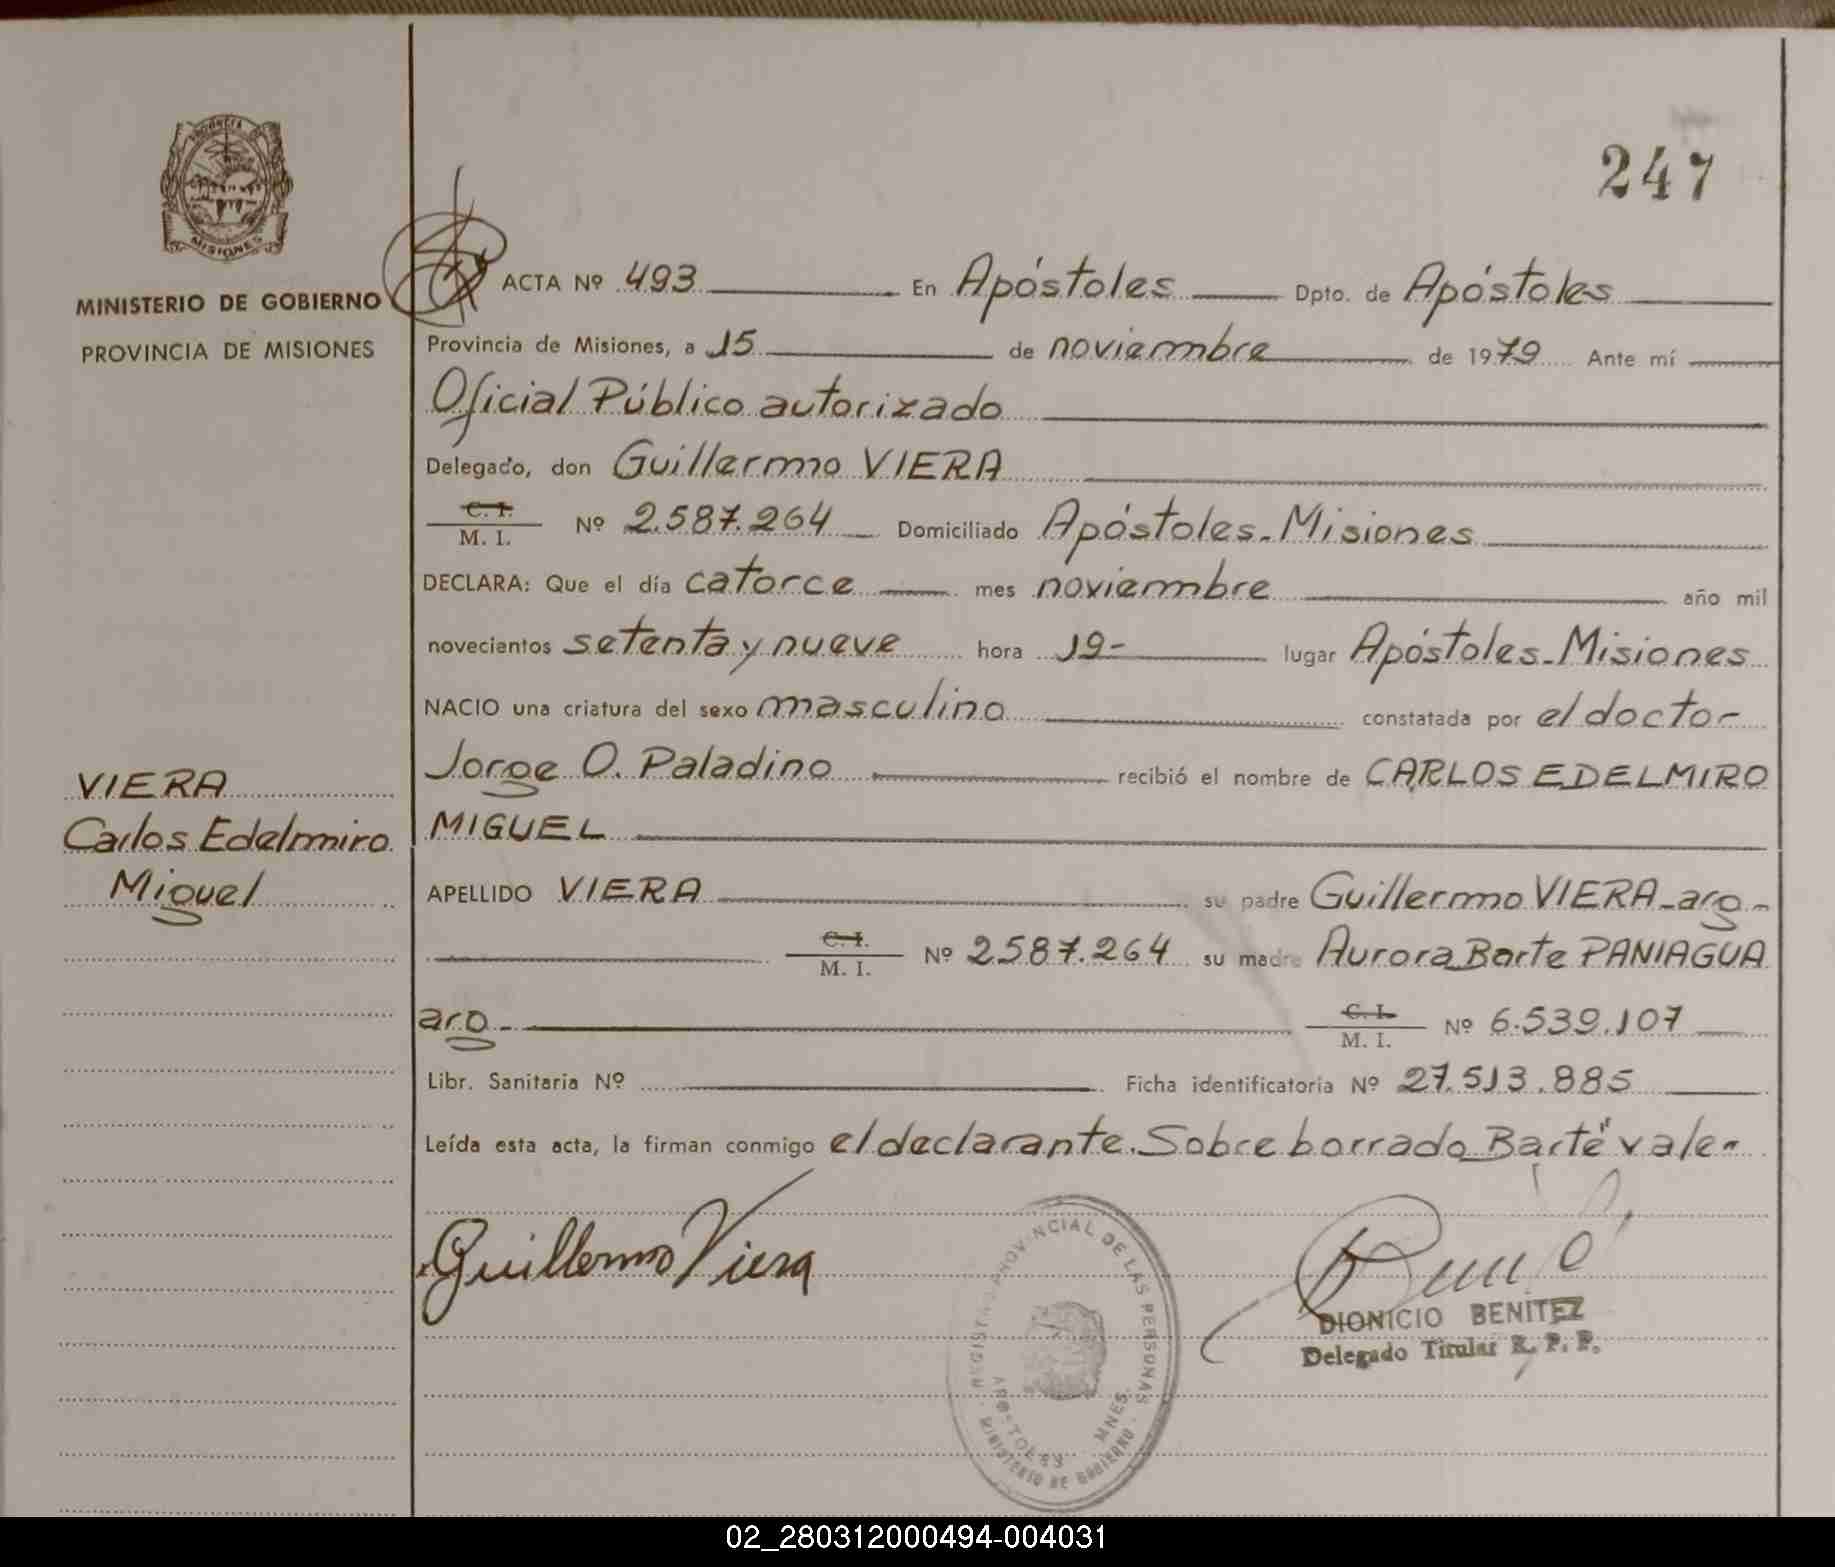 247
ACTA Nº 493 En Apóstoles Dpto. de Apóstoles
MINISTERIO DE GOBIERNO
PROVINCIA DE MISIONES
Provincia de Misiones, a 15 de noviembre de 1979 Ante mí
Oficial Público autorizado
Delegado, don Guillermo VIERA
C. I.
M. I. Nº 2.587.264 Domiciliado Apóstoles-Misiones
DECLARA: Que el día catorce mes noviembre año mil
novecientos setenta y nueve hora 19- lugar Apóstoles-Misiones
NACIO una criatura del sexo masculino constatada por el doctor
Jorge O. Paladino recibió el nombre de CARLOS EDELMIRO
MIGUEL
VIERA
Carlos Edelmiro
Miguel
APELLIDO VIERA su padre Guillermo VIERA-arg-
C. I.
M. I. Nº 2.587.264 su madre Aurora Barte PANIAGUA
arg- C. I.
M. I. Nº 6.539.107
Libr. Sanitaria Nº Ficha identificatoria Nº 27.513.885
Leída esta acta, la firman conmigo el declarante. Sobre borrado Barte" vale-
Guillermo Viera
REGISTRO PROVINCIAL DE LAS PERSONAS
APOSTOLES MNES.
MINISTERIO DE GOBIERNO
DIONICIO BENITEZ
Delegado Titular R. P. P.
PROVINCIA DE
MISIONES
02_280312000494-004031